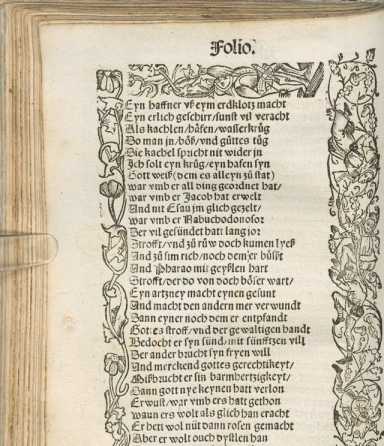 Folio.
Eyn haffner vß eym erdklotz macht
Eyn erlich geschirr/sunst vil veracht
Als kachlen/häfen/wasserkrüg
Do man in/böß/vnd güttes tüg
Die kachel spricht nit wider in
Ich solt eyn krüg/eyn hafen syn
Gott weißt (dem es alleyn zü stat)
war vmb er all ding geordnet hat/
war vmb er Jacob hat erwelt
And nit Esau im glich gezelt/
war vmb er Nabuchodonosor
Der vil gesündet hatt lang jor
Strofft/vnd zü rüw doch kumen lyeß
And zü sim rich/noch dem er büßt
And Pharao mit geyßlen hart
Strofft/der do von doch böser wart/
Eyn artzney macht eynen gesunt
And macht den andern mer verwundt
Dann eyner noch dem er entpfandt
Gottes stroff/vnd der gewaltigen handt
Bedocht er syn sünd/mit sünfftzen vill
Der ander brucht syn fryen will
And merckend gottes gerechtikeyt/
Mißbrucht er sin barmhertzigkeyt/
Dann gott nye keynen hatt verlon
Er wust/war vmb ers hatt gethon
wann ers wolt als glich han eracht
Er hett wol nüt dann rosen gemacht
Aber er wolt ouch dystlen han